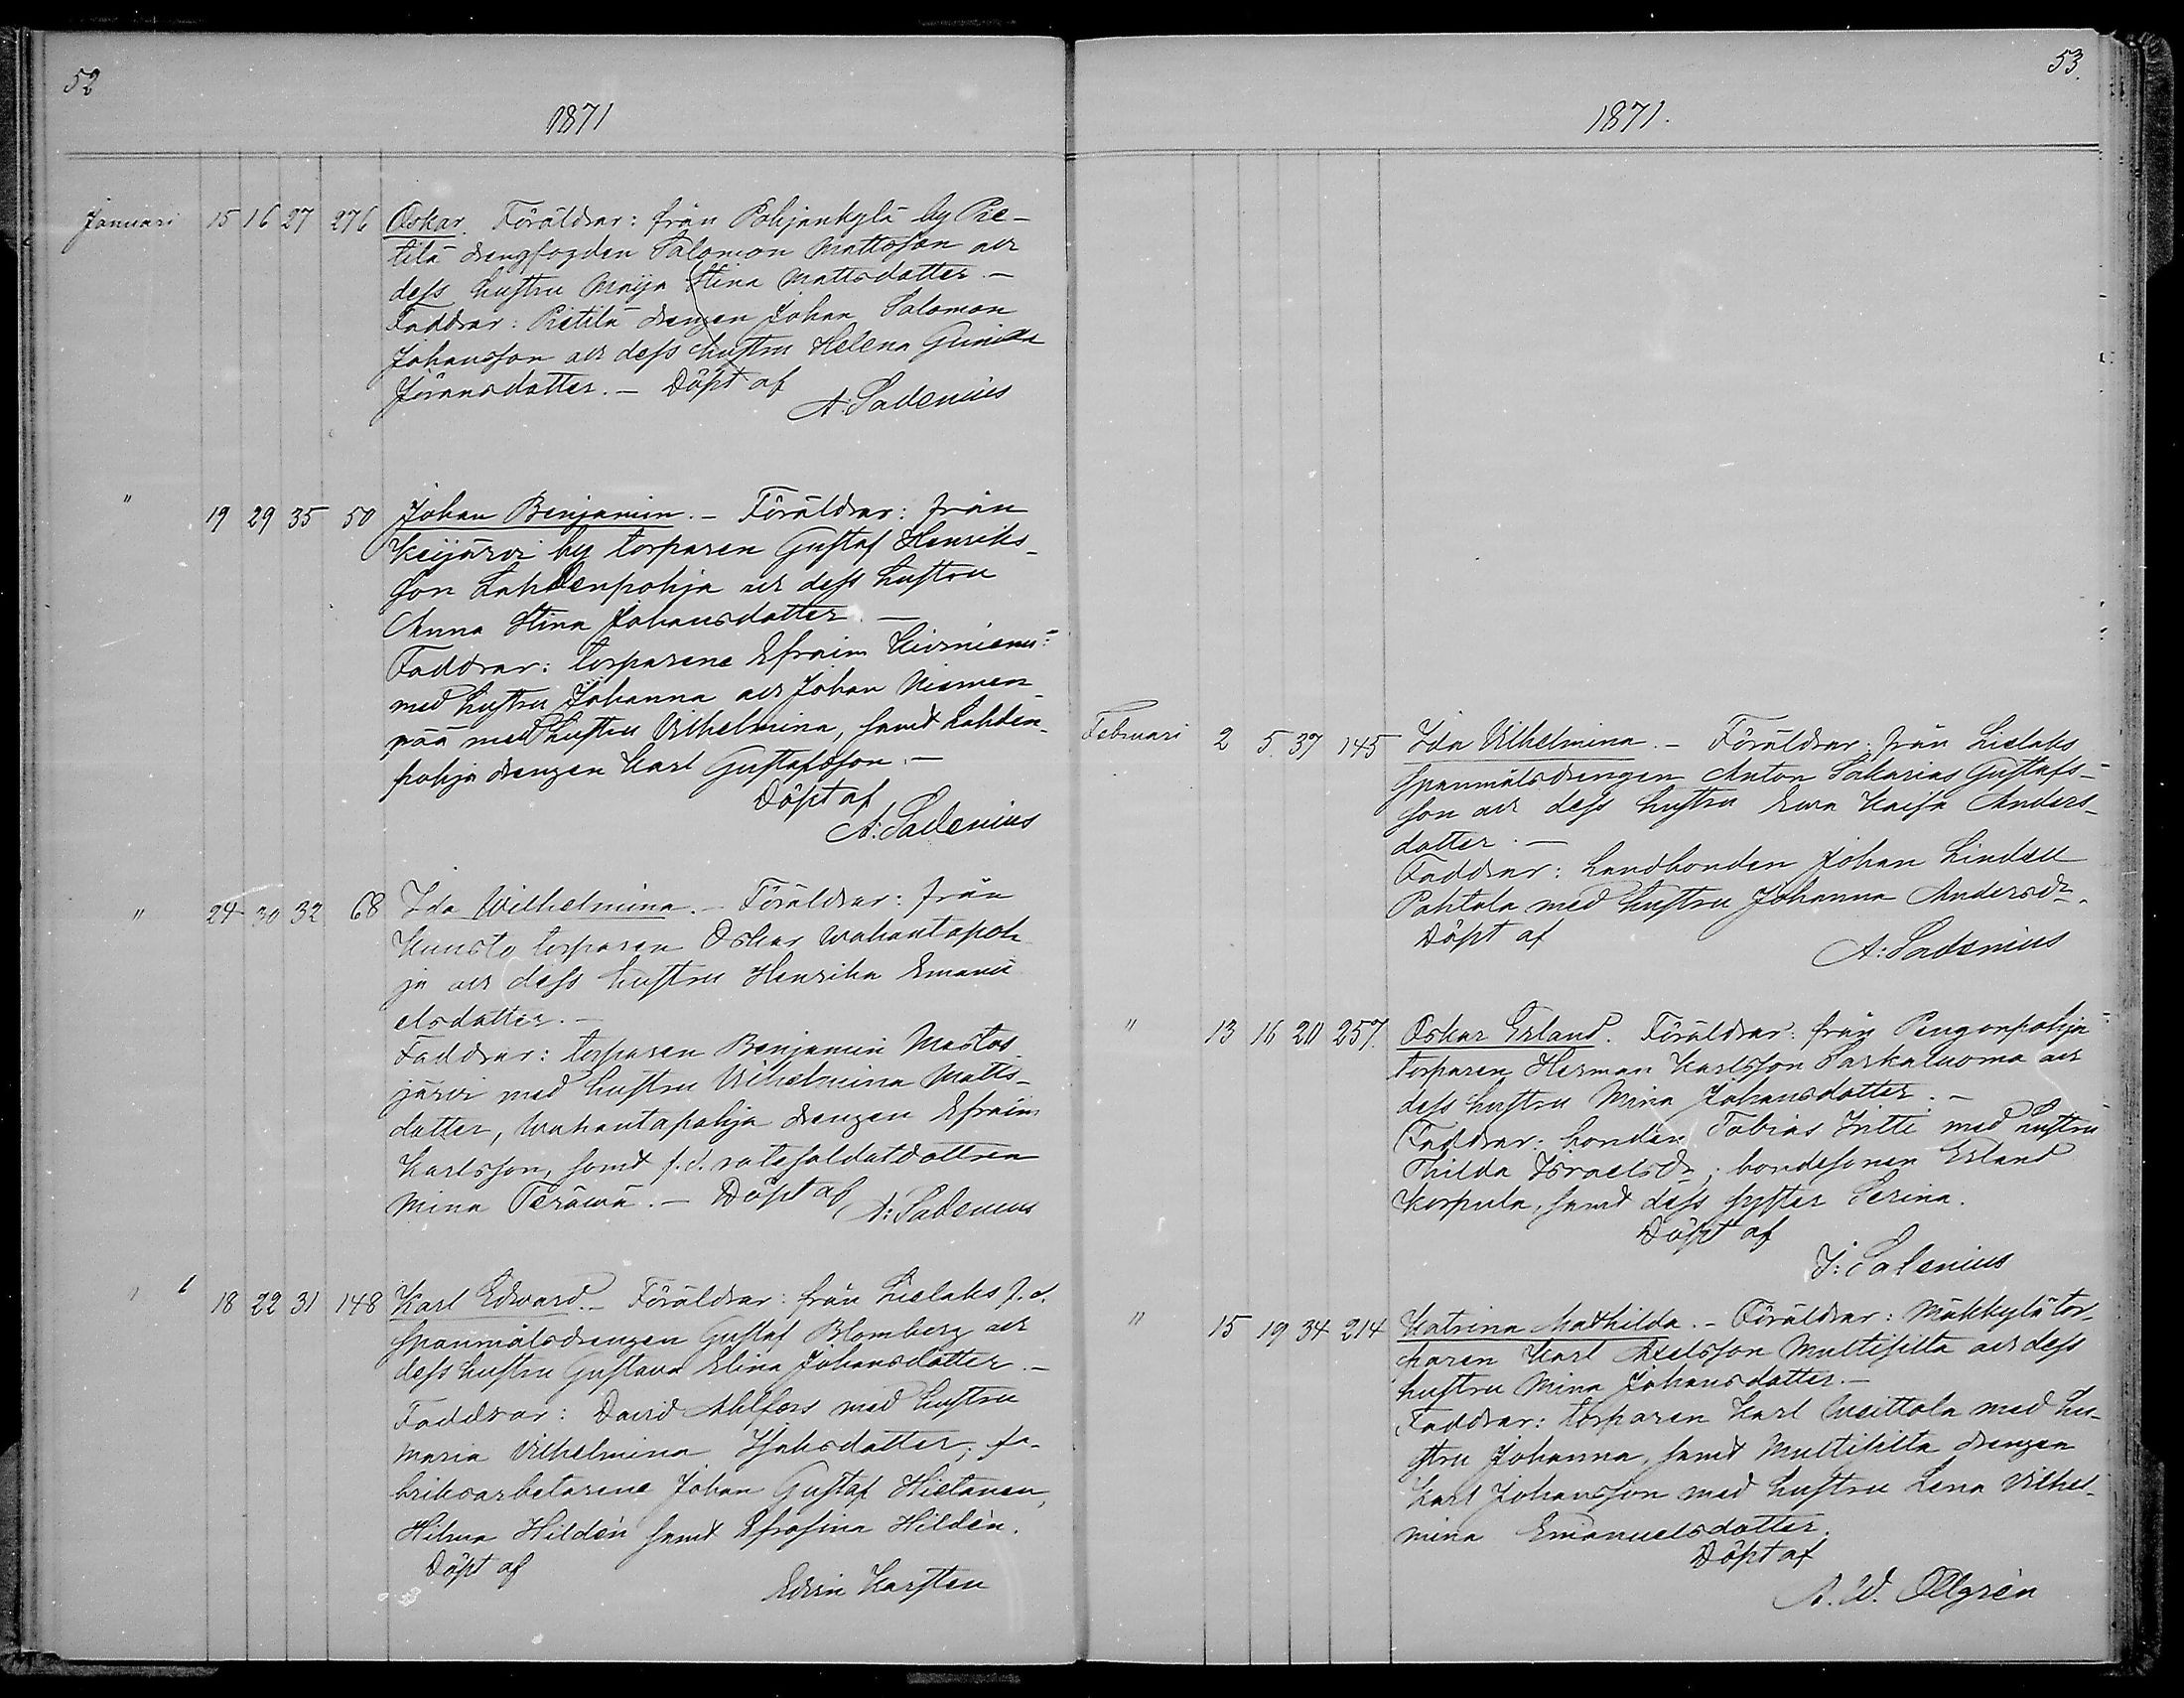 52
1871
Januari 15 16 27 276 Oskar. Föräldrar: från Pohjankylä by Pie-
tilä drengfogden Salomon Mattsson och
dess hustru Maija Stina Mattsdotter. -
Faddrar: Pietilä drengen Johan Salomon
Johansson och dess hustru Helena
Jöransdotter. - Döpt af
A: Sadenius
" 19 29 35 50 Johan Benjamin. - Föräldrar: från
Keijärvi by torparen Gustaf Henriks-
son Lahdenpohja och dess hustru
Anna Stina Johansdotter. -
Faddrar: torparene Efraim
med hustru Johanna och Johan Niemen-
pää med hustru Vilhelmina, samt Lahden-
pohja drengen Karl Gustafsson. -
Döpt af
A: Sadenius
" 24 30 32 68 Ida Wilhelmina. - Föräldrar: från
torparen Oskar Wahantapoh
ja och dess hustru Henrika Emanu
elsdotter. -
Faddrar: torparen Benjamin Mastos
järvi med hustru Vilhelmina Matts-
dotter, Wahantapohja drengen Efraim
Karlsson, samt f.d. rotesoldatdottren
Mina Teräwä. - Döpt af
A: Sadenius
" 18 22 31 148 Karl Edvard. - Föräldrar: från Lielaks f.d.
spanmålsdrengen Gustaf Blomberg och
dess hustru Gustava Elina Johansdotter. -
Faddrar: David Ahlfors med hustru
Maria Vilhelmina Isaksdotter; fa-
briksarbetarene Johan Gustaf Hietanen,
Hilma Hildén samt Efrosina Hildén.
Döpt af
Edvin Karsten
53.
1871.
Februari 2 5 37 145 Ida Vilhelmina. - Föräldrar: från Lielaks
spanmålsdrengen Anton Sakarias Gustafs-
son och dess hustru Eva Kaisa Anders-
dotter. -
Faddrar: Landbonden Johan Lindell
Pahtala med hustru Johanna Andersdr.
Döpt af
A: Sadenius
" 13 16 20 257. Oskar Erland. Föräldrar: från Pengonpohja
torparen Herman Karlsson Sarkaluoma och
dess hustru Mina Johansdotter. -
Faddrar: bonden Tobias Intti med hustru
Thilda Israelsdr; bondesonen Erland
Korpula, samt dess syster Serina.
Döpt af
J: Salenius
" 15 19 34 214 Katrina Mathilda. - Föräldrar: Mäkkylä tor-
paren Karl Axelsson Multisilta och dess
hustru Mina Johansdotter. -
Faddrar: torparen Karl Uusittalo med hu-
stru Johanna, samt Multisilta drengen
Karl Johansson med hustru Lena Vilhel-
mina Emanuelsdotter.
Döpt af
A. W. Ollgrén